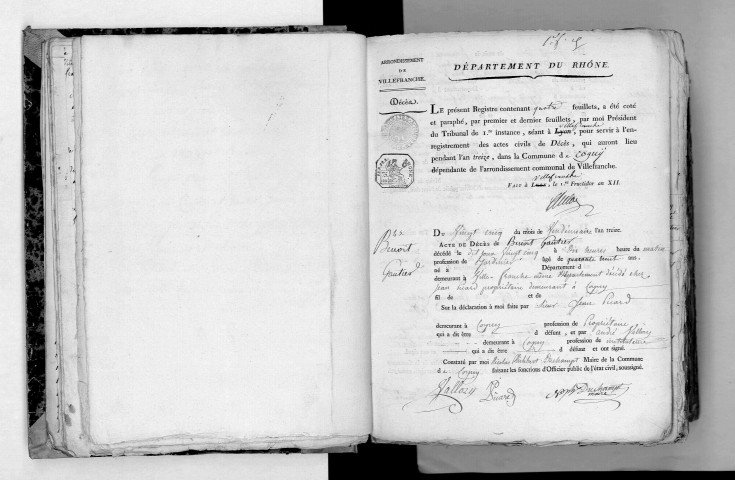 ARRONDISSEMENT
DE
VILLEFRANCHE.
Décès.
DÉPARTEMENT DU RHÔNE.
LE présent Registre contenant quatre feuillets, a été coté
et paraphé, par premier et dernier feuillets, par moi Président
Villefranche
du Tribunal de 1.re instance, séant à Lyon, pour servir à l'en-
registrement des actes civils de Décès, qui auront lieu
pendant l'an treize, dans la Commune de Cogny
dépendante de l'arrondissement communal de Villefranche.
Villefranche
FAIT à Lyon, le 1.er Fructidor an XII.
Benoit
Gautier
DU Vingt cinq du mois de Vendémiaire l'an treize.
ACTE DE DÉCÈS de Benoit Gautier
décédé le dit jour Vingt cinq à Dix heures heure du matin
profession de âgé de quarante ans.
né à Département d
demeurant à Villefranche même Département décédé chez
Jean Picard propriétaire demeurant à Cogny
fil de et de
Sur la déclaration à moi faite par Sieur Jean Picard
demeurant à Cogny profession de Propriétaire
qui a dit être d défunt, et par andré Jallosy
demeurant à Cogny profession de instituteur
qui a dit être d défunt et ont signé.
Constaté par moi Duchampt Maire de la Commune
de Cogny faisant les fonctions d'Officier public de l'état civil, soussigné.
Jallosy Picard Duchampt
maire